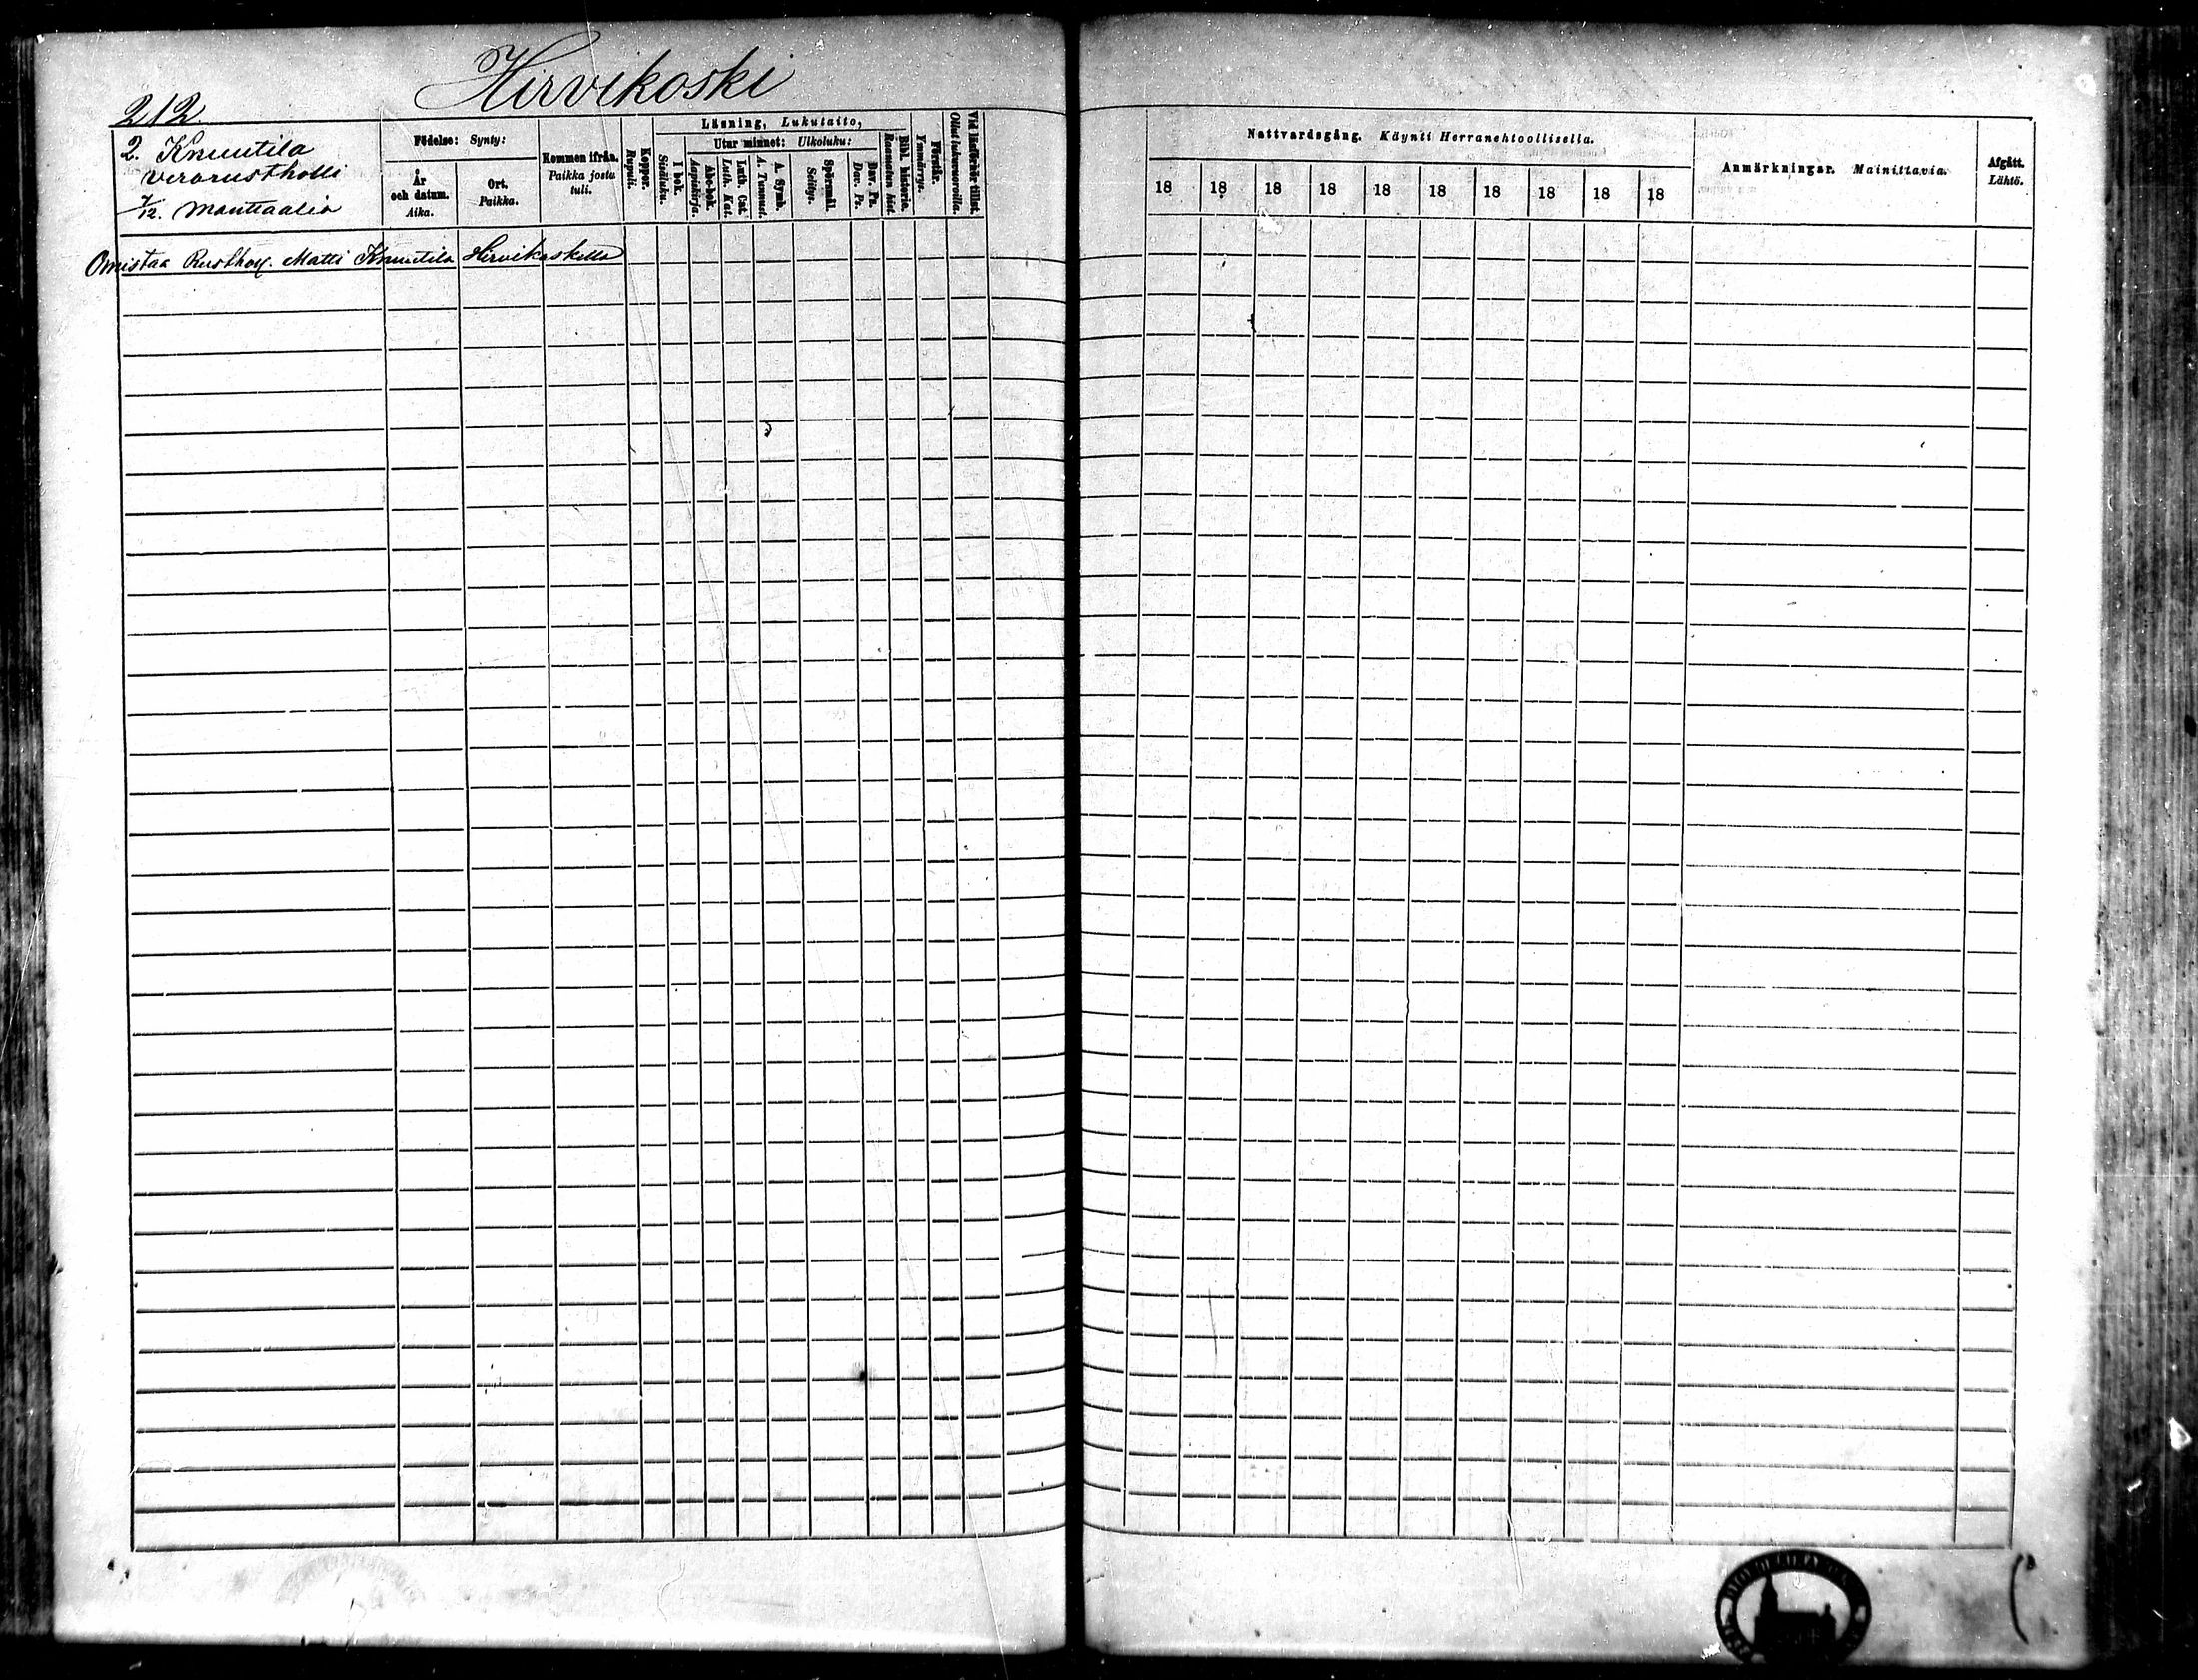 Hirvikoski
212.
2. Knuutila
verorustholli
7/12. manttaalia
Födelse: Synty:
År och datum. Aika.
Ort. Paikka.
Kommen ifrån. Paikka josta tuli.
Koppor. Rupuli.
Läsning, Lukutaito,
I bok. Sisäluku.
Utur minnet: Ulkoluku:
Abc-bok. Aapiskirja.
Luth. Cat. Luth. Kat.
A. Symb. A. Tunnust.
Spörsmål. Selitys.
Dav. Ps. Dav. Ps.
Bibl. historie. Raamatun hist.
Förstår. Ymmärrys.
Vid läsförhör tillst. Ollut lukuvuoroilla.
Omistaa Rusth. Matti Knuutila Hirvikoskella
Nattvardsgång. Käynti Herranehtoollisella.
18 18 18 18 18 18 18 18 18 18
Anmärkningar. Mainittavia.
Afgått. Lähtö.